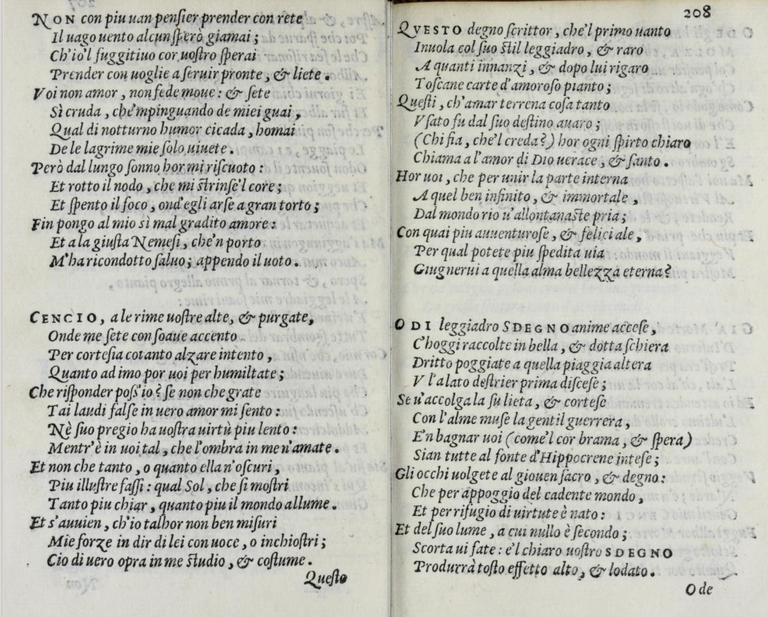 NON con piu uan penſier prender con rete
Il uago uento alcun ſperò giamai;
Ch'io'l fuggitiuo cor uoſtro ſperai
Prender con uoglie a ſeruir pronte, & liete.
Voi non amor, non fede moue: & ſete
Sì cruda, che'mpinguando de miei guai,
Qual di notturno humor cicada, homai
De le lagrime mie ſolo uiuete.
Però dal lungo ſonno hor mi riſcuoto:
Et rotto il nodo, che mi ſtrinſe'l core;
Et ſpento il foco, ond'egli arſe a gran torto;
Fin pongo al mio sì mal gradito amore:
Et a la giuſta Nemeſi, che'n porto
M'ha ricondotto ſaluo; appendo il uoto.
CENCIO, a le rime uoſtre alte, & purgate,
Onde me ſete con ſoaue accento
Per corteſia cotanto alzare intento,
Quanto ad imo por uoi per humiltate;
Che riſponder poſs'io? ſe non che grate
Tai laudi falſe in uero amor mi ſento:
Nè ſuo pregio ha uoſtra uirtù piu lento:
Mentr'è in uoi tal, che l'ombra in me n'amate.
Et non che tanto, o quanto ella n'oſcuri,
Piu illuſtre faſſi: qual Sol, che ſi moſtri
Tanto piu chiar, quanto piu il mondo allume.
Et s'auuien, ch'io talhor non ben miſuri
Mie forze in dir di lei con uoce, o inchioſtri;
Cio di uero opra in me ſtudio, & coſtume.
Queſto
208
QVESTO degno ſcrittor, che'l primo uanto
Inuola col ſuo ſtil leggiadro, & raro
A quanti innanzi, & dopo lui rigaro
Toſcane carte d'amoroſo pianto;
Queſti, ch'amar terrena coſa tanto
Vſato fu dal ſuo deſtino auaro;
(Chi fia, che'l creda?) hor ogni ſpirto chiaro
Chiama a l'amor di DIO uerace, & ſanto.
Hor uoi, che per unir la parte interna
A quel ben infinito, & immortale,
Dal mondo rio u'allontanaſte pria;
Con quai piu auuenturoſe, & felici ale,
Per qual potete piu ſpedita uia
Giugnerui a quella alma bellezza eterna?
ODI leggiadro SDEGNO anime acceſe,
C'hoggi raccolte in bella, & dotta ſchiera
Dritto poggiate a quella piaggia altera
V l'alato deſtrier prima diſceſe;
Se u'accolga la ſu lieta, & corteſe
Con l'alme muſe la gentil guerrera,
E'n bagnar uoi (come'l cor brama, & ſpera)
Sian tutte al fonte d'Hippocrene inteſe;
Gli occhi uolgete al giouen ſacro, & degno:
Che per appoggio del cadente mondo,
Et per rifugio di uirtute è nato:
Et del ſuo lume, a cui nullo è ſecondo;
Scorta ui fate: e'l chiaro uoſtro SDEGNO
Produrrà toſto effetto alto, & lodato.
O de